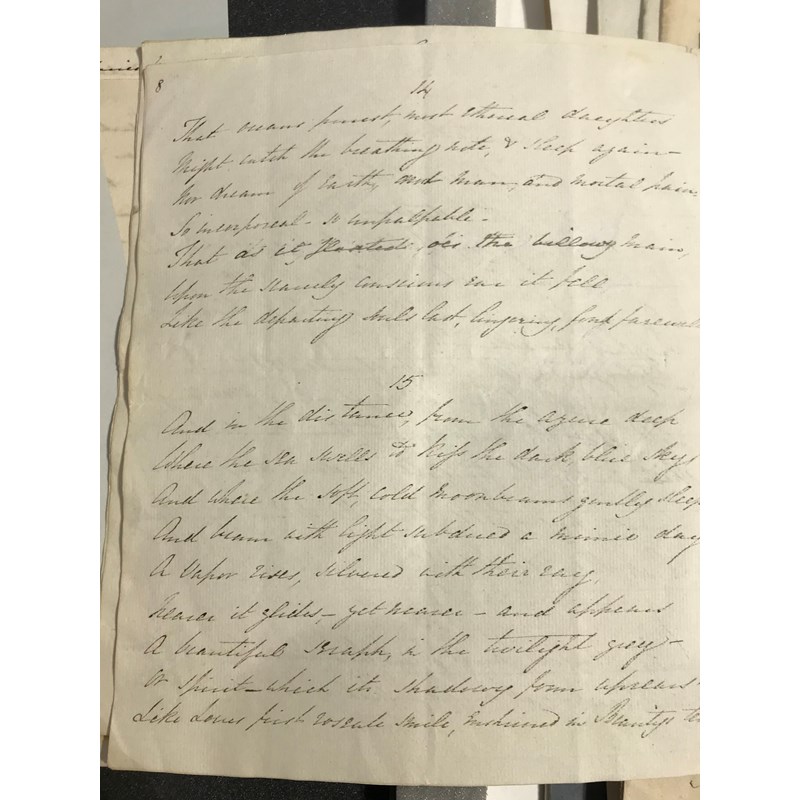 8
14
That oceans purest, most ethereal daughters
Might catch the breathing note, & sleep again –
Nor dream of Earth, and man, and mortal pain,
So incorporeal – so impalpable –
That as it floated o'er the billowy main,
Upon the scarcely conscious ear it fell
Like the departing souls last, lingering, fond farewell
15
And in the distance, from the azure deep
Where the sea swells to kiss the dark, blue sky,
And where the soft, cold moonbeams gently sleep
And beam with light subdued a mimic day
A vapor rises, silvered with their ray,
Nearer it glides – yet nearer – and appears
A beautiful Seraph, in the twilight grey –
Or spirit – which its shadowy form uprears –
Like Loves first roseate smile, enshrined in Beauty's